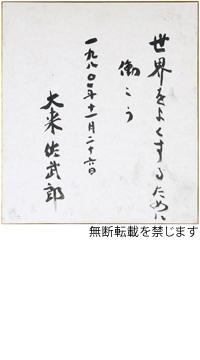 世界をよくするために
働こう
一九八〇年十一月二十六日
大来佐武郎
無断転載を禁じます